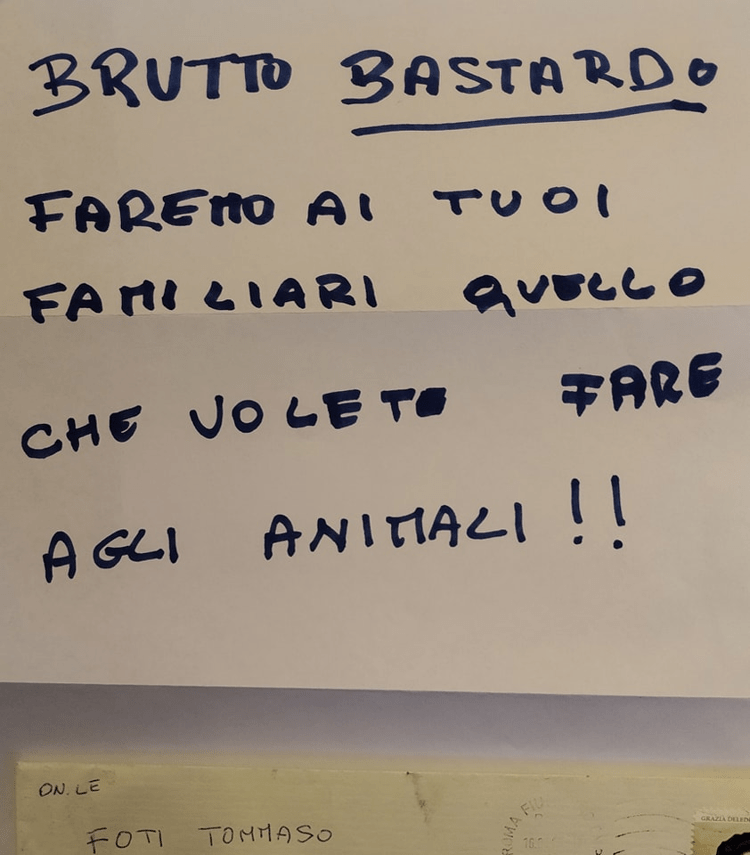 BRUTTO BASTARDO
FAREMO AI TUOI
FAMILIARI QUELLO
CHE VOLETE FARE
AGLI ANIMALI !!
ON.LE
FOTI TOMMASO
ROMA
GRAZIA DELEDD